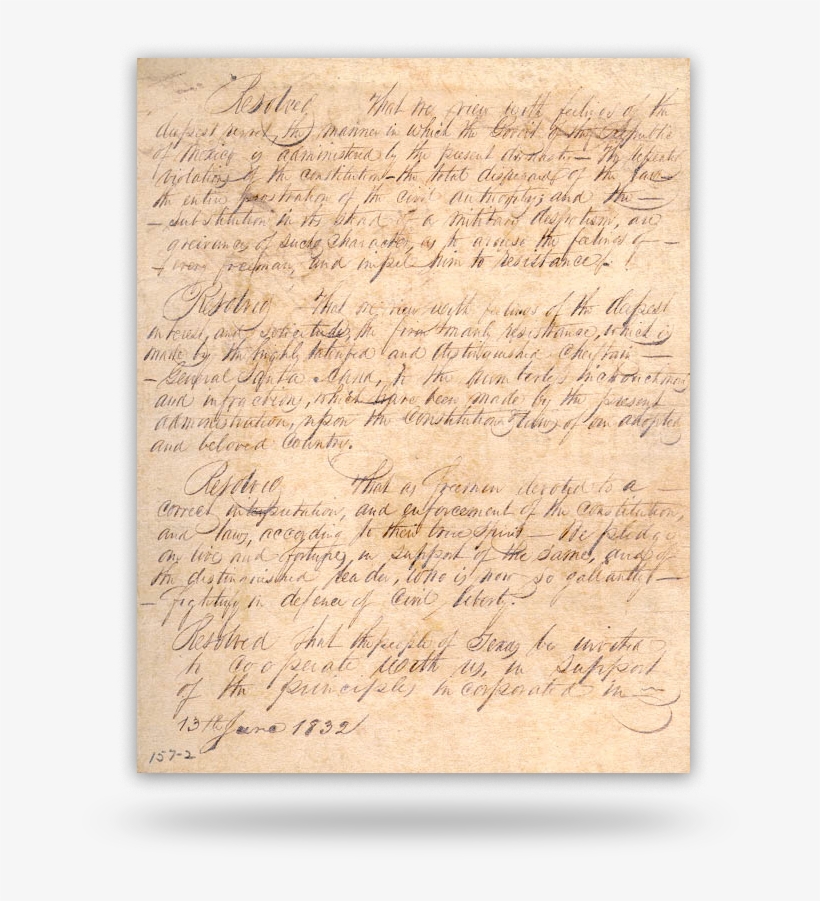 Resolved That we view with feelings of the
deepest regret, the manner in which the Govt of the Republic
of Mexico is administered by the present dynasty — The repeated
violations of the constitution — the total disregard of the laws —
the entire prostration of the civil authority; and the —
— substitution in its stead of a military despotism, are
greivances of such a character, as to arouse the feelings of —
— every freeman, and impel him to resistance —
Resolved That we view with feelings of the deepest
interest, and solicitude, the firm and manly resistance, which is
made by the highly talented and distinguished Chieftain —
— General Santa Anna, to the numberless incroachments
and infractions, which have been made by the present
administration, upon the Constitution & laws of our adopted
and beloved Country.
Resolved That as freemen devoted to a —
correct interpretation, and enforcement of the Constitution,
and laws, according to their true Spirit — We pledge
our lives and fortunes, in support of the same, and of
the distinguished leader, who is now so gallantly —
— fighting in defence of Civil liberty.
Resolved That the people of Texas be invited
to cooperate with us, in support
of the principles incorporated in —
13th June 1832
157-2